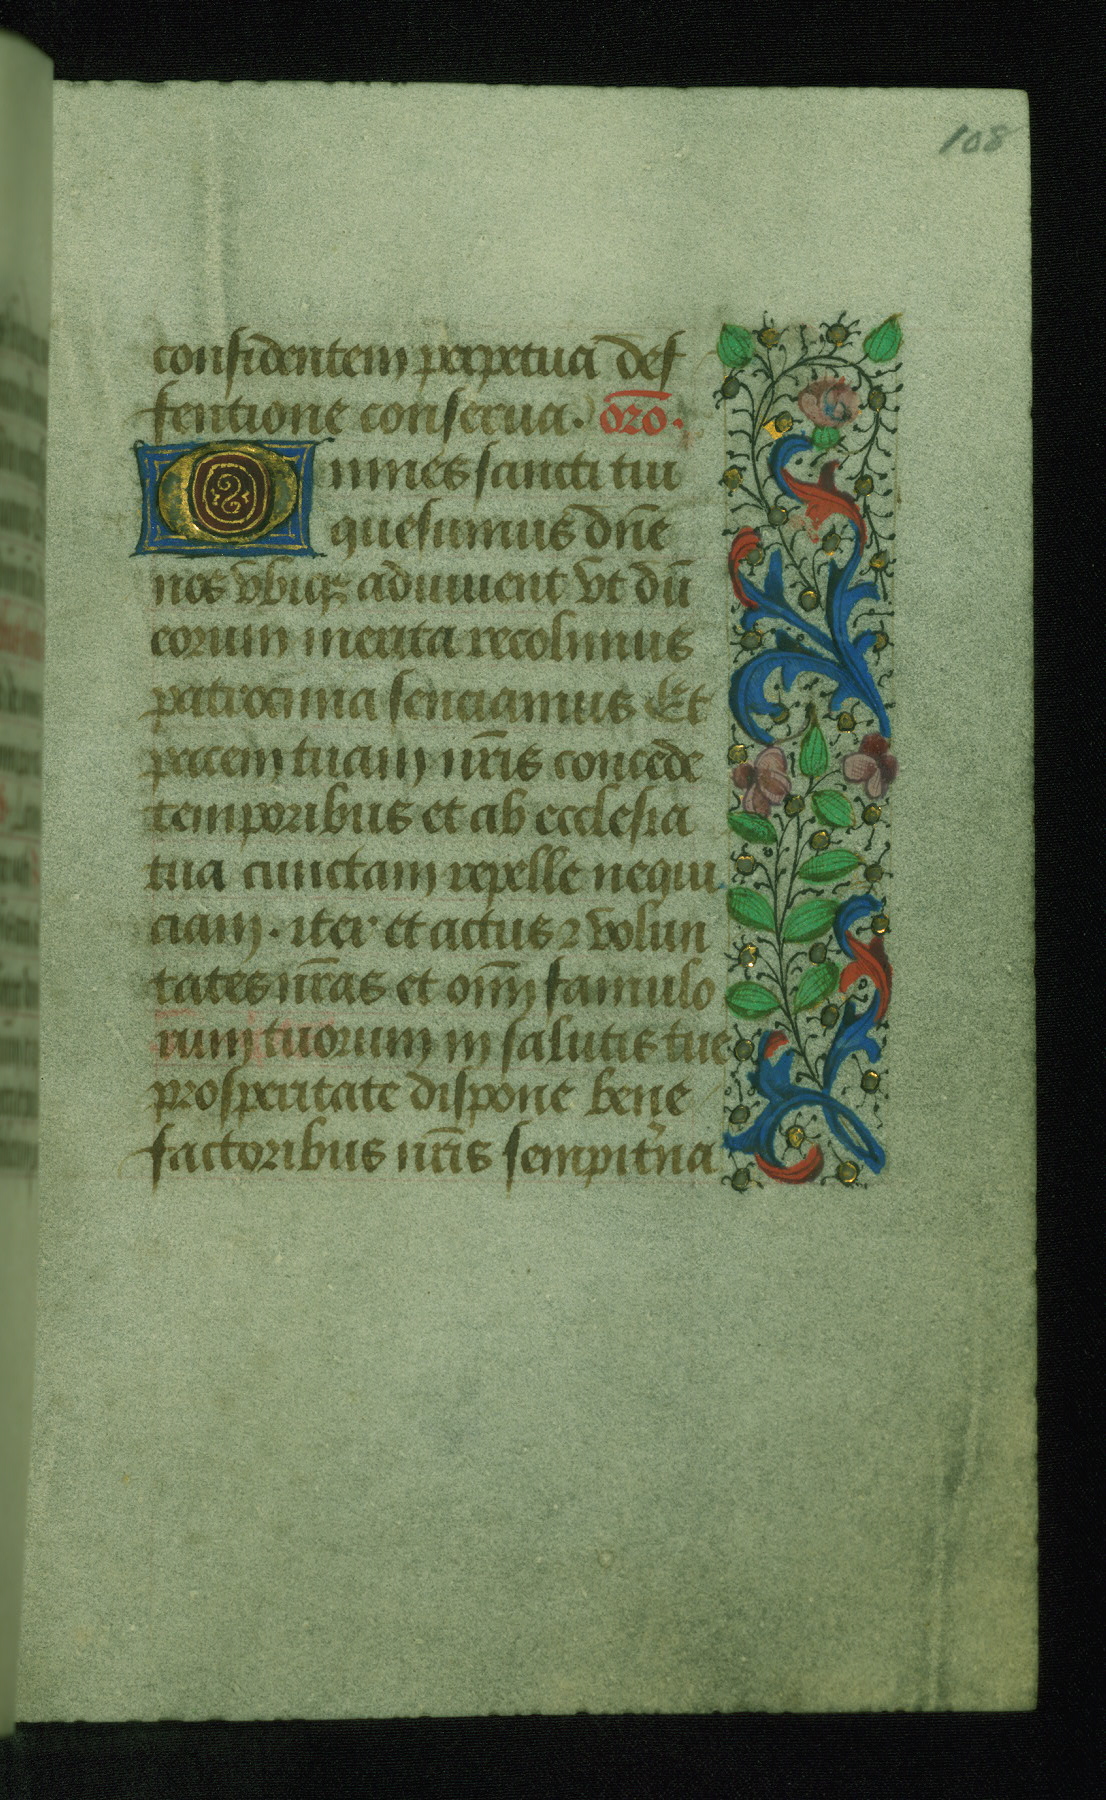 108
confidentem perpetua def
fentione conserua. or̄o.
Omnes sancti tui
quesumus dn̄e
nos vbiqꝫ adiuuent vt dū
eorum merita recolimus
patrocinia senciamus Et
pacem tuam nr̄is concede
temporibus et ab ecclesia
tua cunctam repelle nequi
ciam. iter et actus ⁊ volun
tates nr̄as et om̄m famulo
rum tuorum in salutis tue
prosperitate dispone bene
factoribus nr̄is sempit̓na